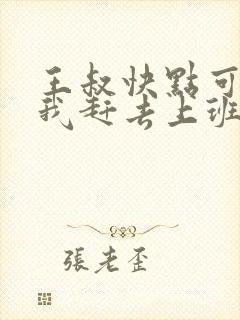 王叔快點可
我赶去上班
張老歪